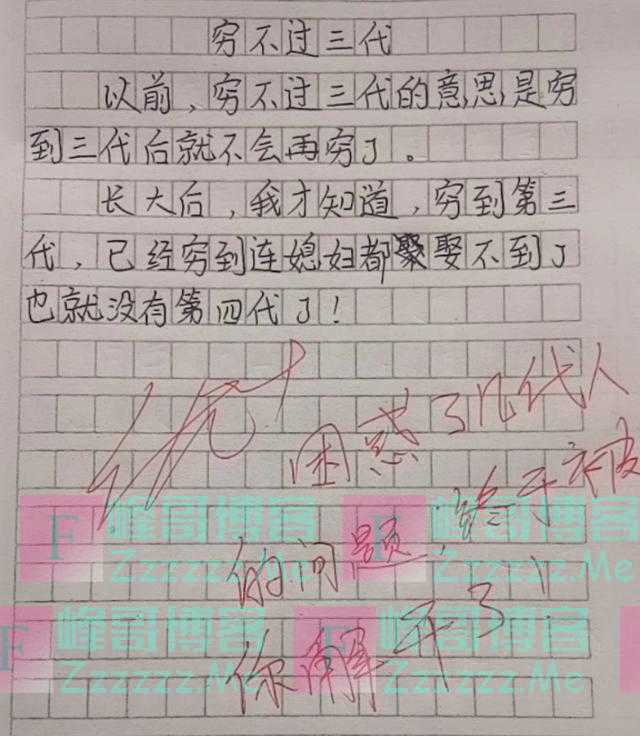 穷不过三代
以前，穷不过三代的意思是穷
到三代后就不会再穷了。
长大后，我才知道，穷到第三
代，已经穷到连媳妇都聚娶不到了
也就没有第四代了！
优+
困惑了几代人
的问题，终于被
你解开了！
F 峰哥博客 F 峰哥博客
Zzzzzz.Me Zzzzzz.Me
F 峰哥博客 F 峰哥博客
Zzzzzz.Me Zzzzzz.Me